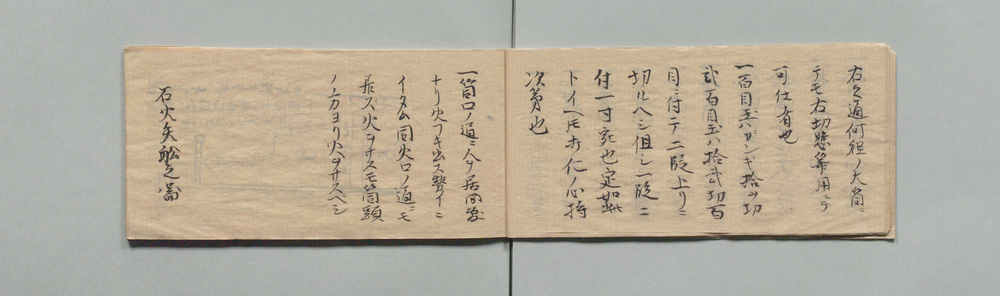 右之通何程ノ大筒ニ
テモ右切懸等用ニテ
可仕者也
一百目玉ハガンギ拾ヲ切
弐百目玉ハ拾弐切百
目ニ付テ二段上リニ
切ルヘシ但シ一段ニ
付一寸宛也定如此
トイヘトモ仁ノ心持
次第也
一筒口ノ通ニ人ヲ居
ナリ火フキ出ス勢イニ
イタム同火口ノ通ニモ
居ス火ヲサスモ筒頭
ノ方ヨリ火ヲサスヘシ
石火矢船之